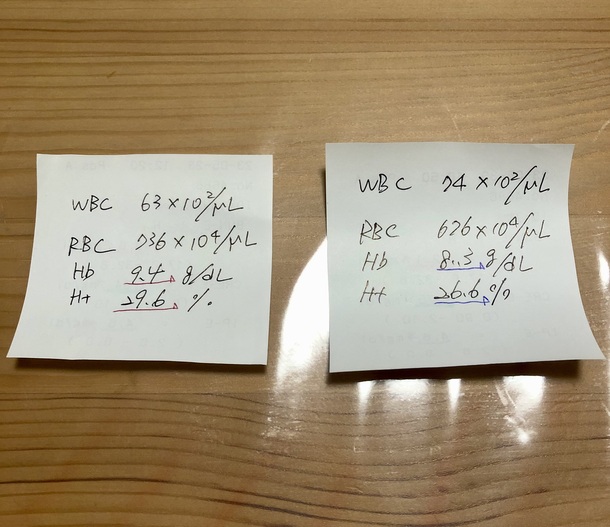 WBC 63×10²/μL
RBC 736×10⁴/μL
Hb 9.4 g/dL
Ht 29.6 %
WBC 74×10²/μL
RBC 626×10⁴/μL
Hb 8.3 g/dL
Ht 26.6 %